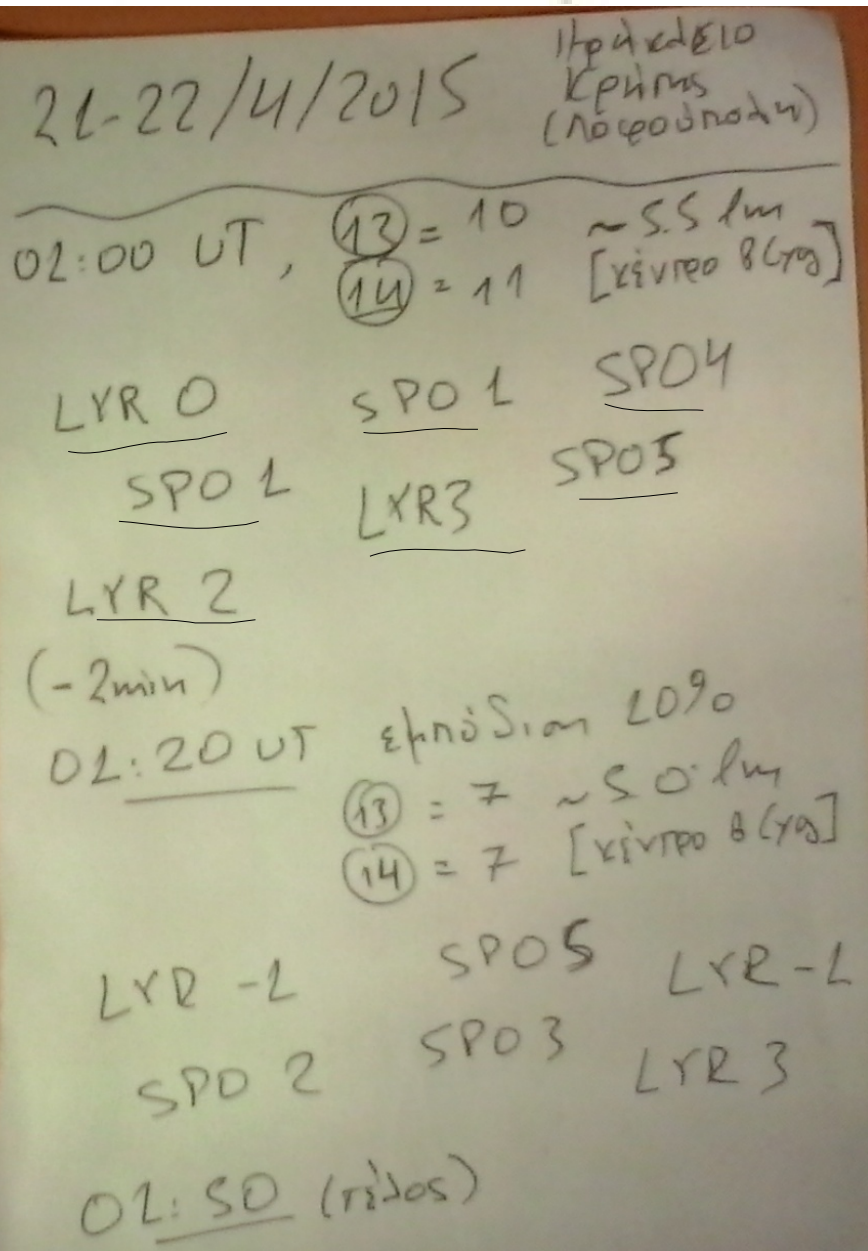 21-22/4/2015
Ηράκλειο
Κρήτης
(Λοφούπολη)
01:00 UT, 13 = 10 ~5.5 lm
14 = 11 [κέντρο β Cyg]
LYR 0 SPO 1 SPO4
SPO 1 LYR3 SPO5
LYR 2
(-2min)
01:20 UT εμπόδιση 10%
13 = 7 ~5.0 lm
14 = 7 [κέντρο β Cyg]
LYR -1 SPO5 LYR-1
SPO 2 SPO 3 LYR 3
01:50 (τέλος)